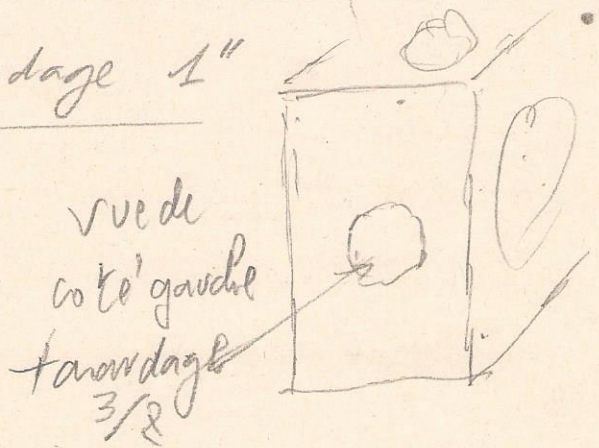 dage 1"
vue de
coté gauche
taraudage
3/8